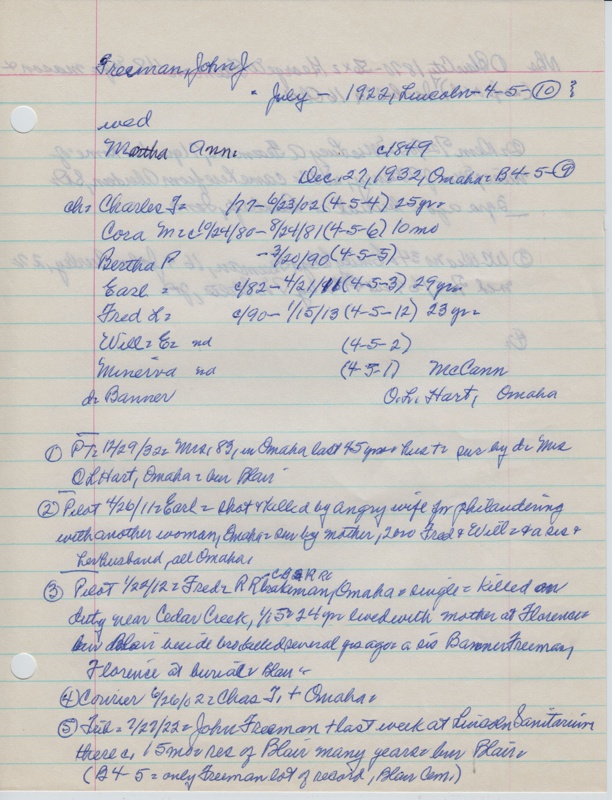 Freeman, John J
" July - 1922, Lincoln - 4-5-(10)
wed
Martha Ann = c/1849
Dec. 27, 1932, Omaha = B4-5-(9)
ch = Charles T = /77 - 6/23/02 (4-5-4) 25 yr =
Cora M = c 10/24/80 - 8/24/81 (4-5-6) 10 mo
Bertha P - 3/20/90 (4-5-5)
Earl = c/82 - 4/21/11 (4-5-3) 29 yr =
Fred L = c/90 - 1/15/13 (4-5-12) 23 yr =
Will = E = nd (4-5-2)
Minerva nd (4-5-1) McCann
d = Banner O.L. Hart, Omaha
① PT = 12/29/32 = Mrs, 83, in Omaha last 45 yrs = hus + = sur by d = Mrs
O L Hart, Omaha = bur Blair
② Pilot 4/26/11 = Earl = shot & killed by angry wife for philandering
with another woman, Omaha = sur by mother, 2 bro Fred & Will = & a sis &
her husband, all Omaha,
③ Pilot 1/22/12 = Fred = RR brakeman, Omaha = single = killed on
duty near Cedar Creek, 1/15 = 24 yr = lived with mother at Florence =
bur Blair beside bro killed several yrs ago = a sis Banner Freeman,
Florence at burial = Blair =
④ Courier 6/26/02 = Chas T, + Omaha =
⑤ Trib = 7/27/22 = John Freeman + last week at Lincoln Sanitarium
there c, 15 mo = res of Blair many years = bur Blair =
(B4-5 = only Freeman lot of record, Blair Cem.)